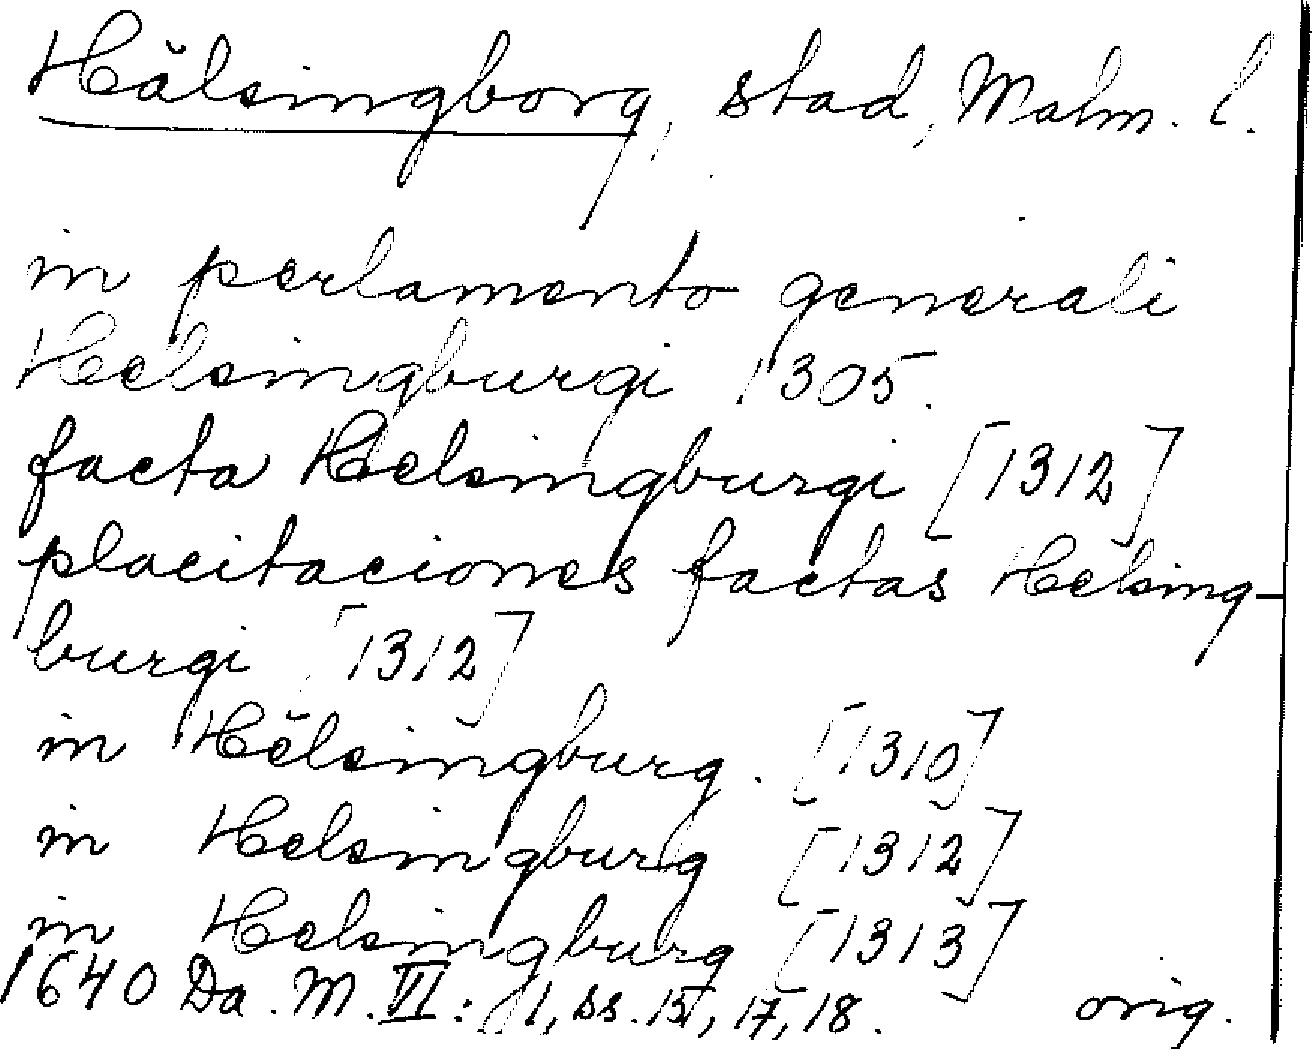 Hälsingborg, stad, Malm. l.
in perlamento generali
Helsingburgi 1305.
facta Helsingburgi [1312]
placitaciones factas Helsing-
burgi [1312]
in Hělsingburg. [1310]
in Helsingburg [1312]
in Helsingburg [1313]
1640 Da. M. VI: 1, ss. 15, 17, 18. orig.